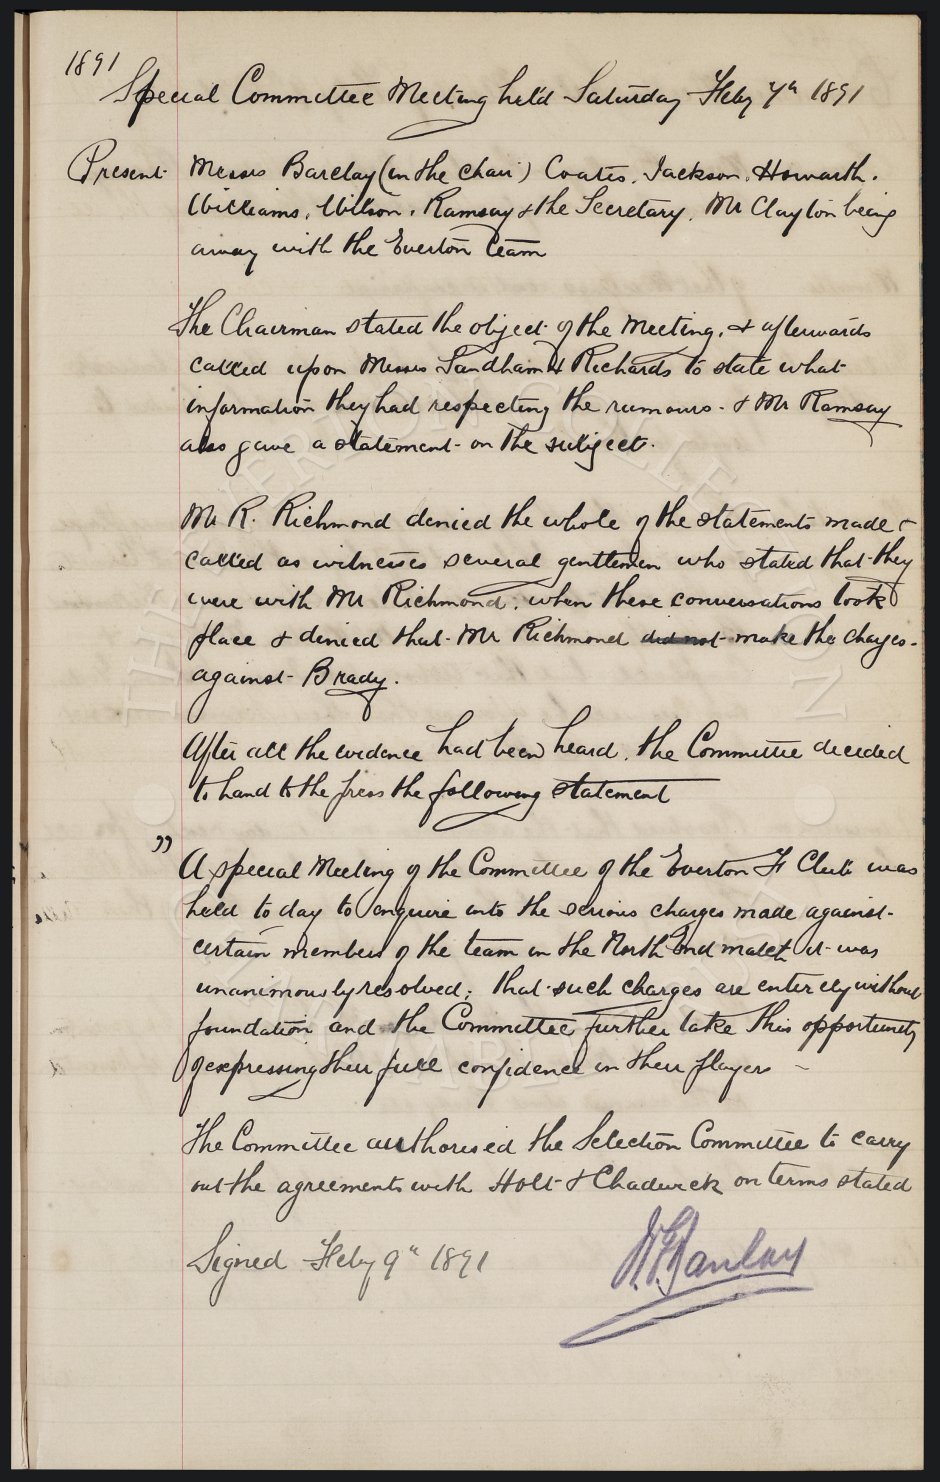 1891
Special Committee Meeting held Saturday Feby 7th 1891
Present Messrs Barclay (in the chair) Coates, Jackson, Howarth.
Williams, Wilson, Ramsay & the Secretary, Mr Clayton being
away with the Everton Team
The Chairman stated the object of the Meeting, & afterwards
called upon Messrs Sandham & Richards to state what
information they had respecting the rumours. & Mr Ramsay
also gave a statement on the subject.
Mr R. Richmond denied the whole of the statements made &
called as witnesses several gentlemen who stated that they
were with Mr Richmond, when these conversations took
place & denied that Mr Richmond did not make the charges
against Brady.
After all the evidence had been heard, the Committee decided
to hand to the press the following statement
" A special Meeting of the Committee of the Everton F Club was
held to day to enquire into the serious charges made against
certain members of the team in the North End match it was
unanimously resolved; that such charges are entirely without
foundation and the Committee further take this opportunity
of expressing their full confidence in their players
The Committee authorised the Selection Committee to carry
out the agreements with Holt & Chadwick on terms stated
Signed Feby 9th 1891
THE EVERTON COLLECTION